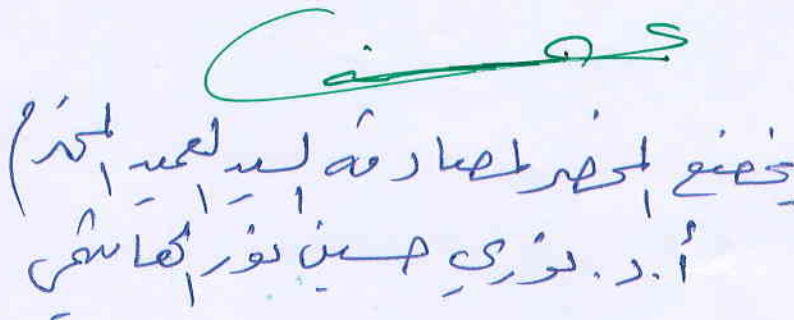 يخضع المحضر لمصادقة السيد العميد المحترم
أ.د. نوري حسين نور الهاشمي